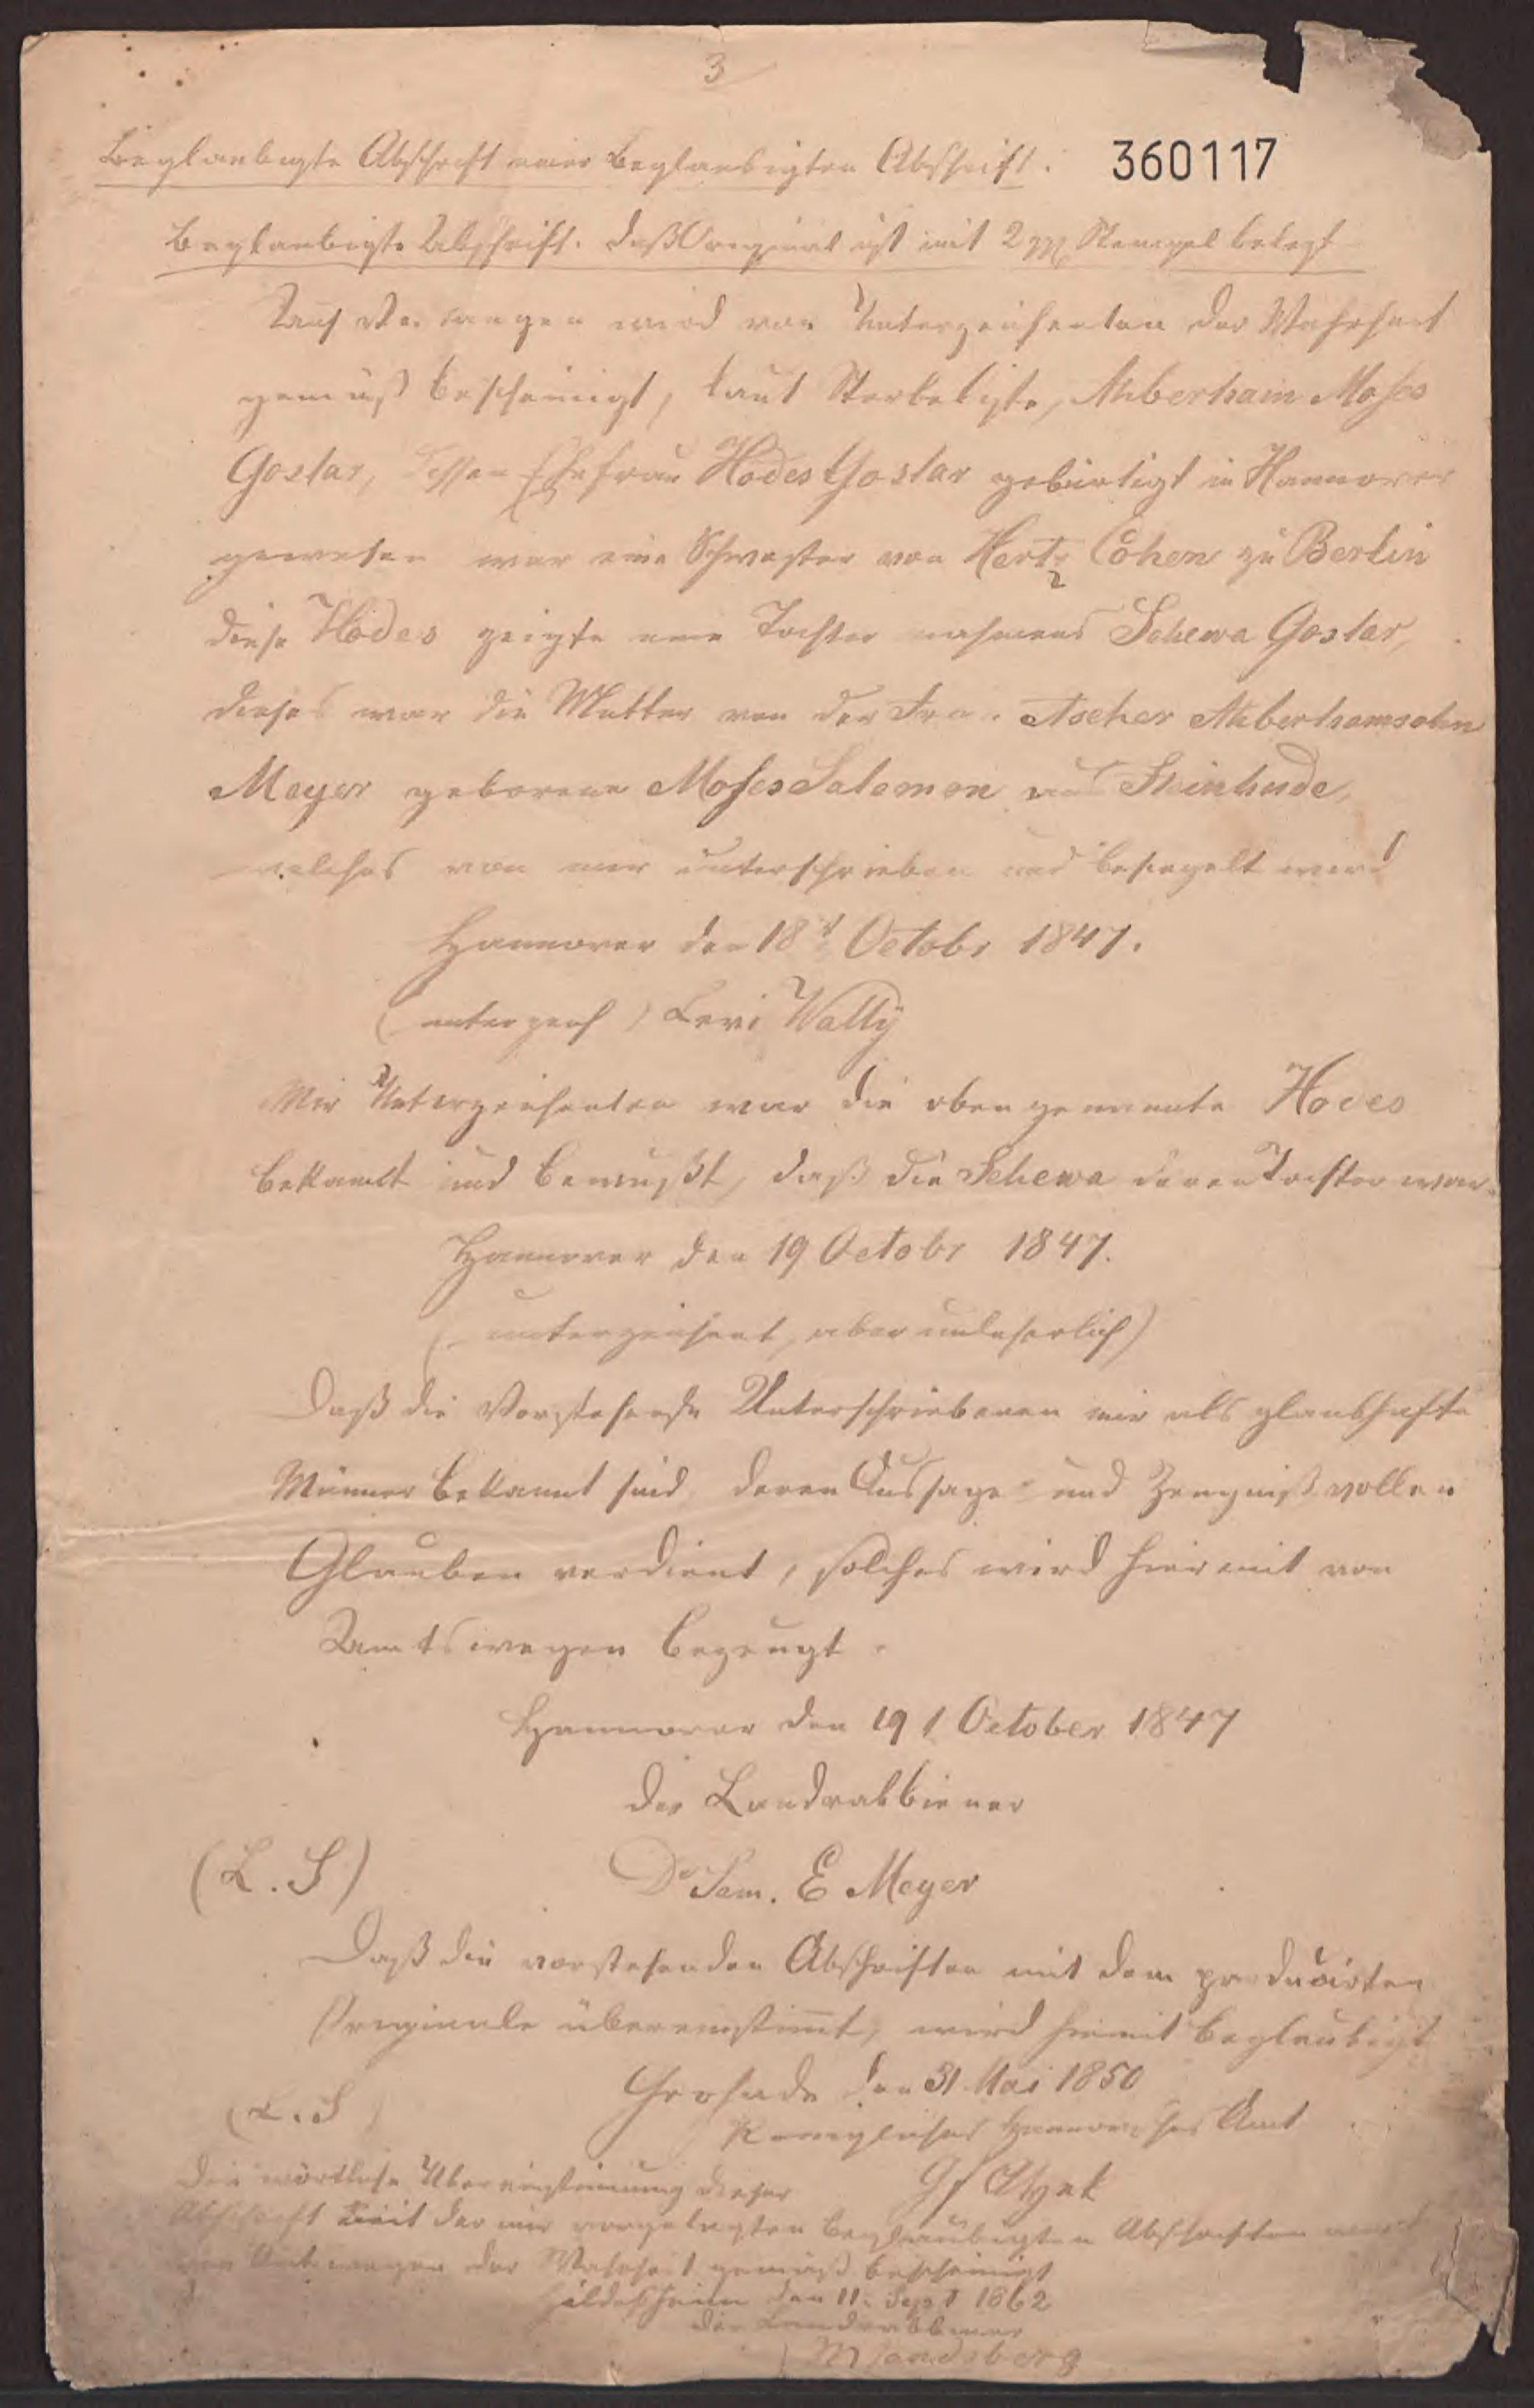 3
Beglaubigte Abschrift einer beglaubigten Abschrift.
360117
Beglaubigte Abschrift. Daß Original ist mit 2 Stempel belegt
Auf Verlangen wird von Unterzeichneten der Wahrheit
gemäß bescheinigt, laut Sterbeliste, Abberham Moses
Goslar, dessen Ehefrau Hodes Goslar gebürtigt in Hannover
gewesen war eine Schwester von Hertz Cohen zu Berlin
diese Hodes zeigte eine Tochter nahmens Schewa Goslar,
dieses war die Mutter von der Frau Ascher Abberhamsohn
Meyer geborene Moses Salomon aus Steinhude,
welches von mir unterschrieben und besiegelt wird
Hannover den 18t Octobr 1847.
(unterzeich) Levi Wally
Mir Unterzeichneten war die oben genannte Hodes
bekannt und bewußt, daß die Schewa deren Tochter war.
Hannover den 19 Octobr 1847.
(unterzeichnet, aber unleserlich)
Daß die Vorstehende Unterschriebenen mir als glaubhafte
Männer bekannt sind deren Aussage und Zeugniß vollen
Glauben verdient, solches wird hiermit von
Amtswegen bezeugt.
Hannover den 19t October 1847
Der Landrabbiener
(L.S) Dr Sam. E Meyer
Daß die vorstehenden Abschriften mit dem producirten
Originale übereinstimt, wird hiemit beglaubigt
Grohnde den 31 Mai 1850
(L.S) Königliches Hannovrsches Amt
Die wörtliche Übereinstimmung dieser
Abschrift mit der mir vorgelegten beglaubigten Abschriften wird
von Amtswegen der Wahrheit gemäß bescheinigt
Hildesheim den 11. Sept 1862
Der Landrabbiner
M Landsberg